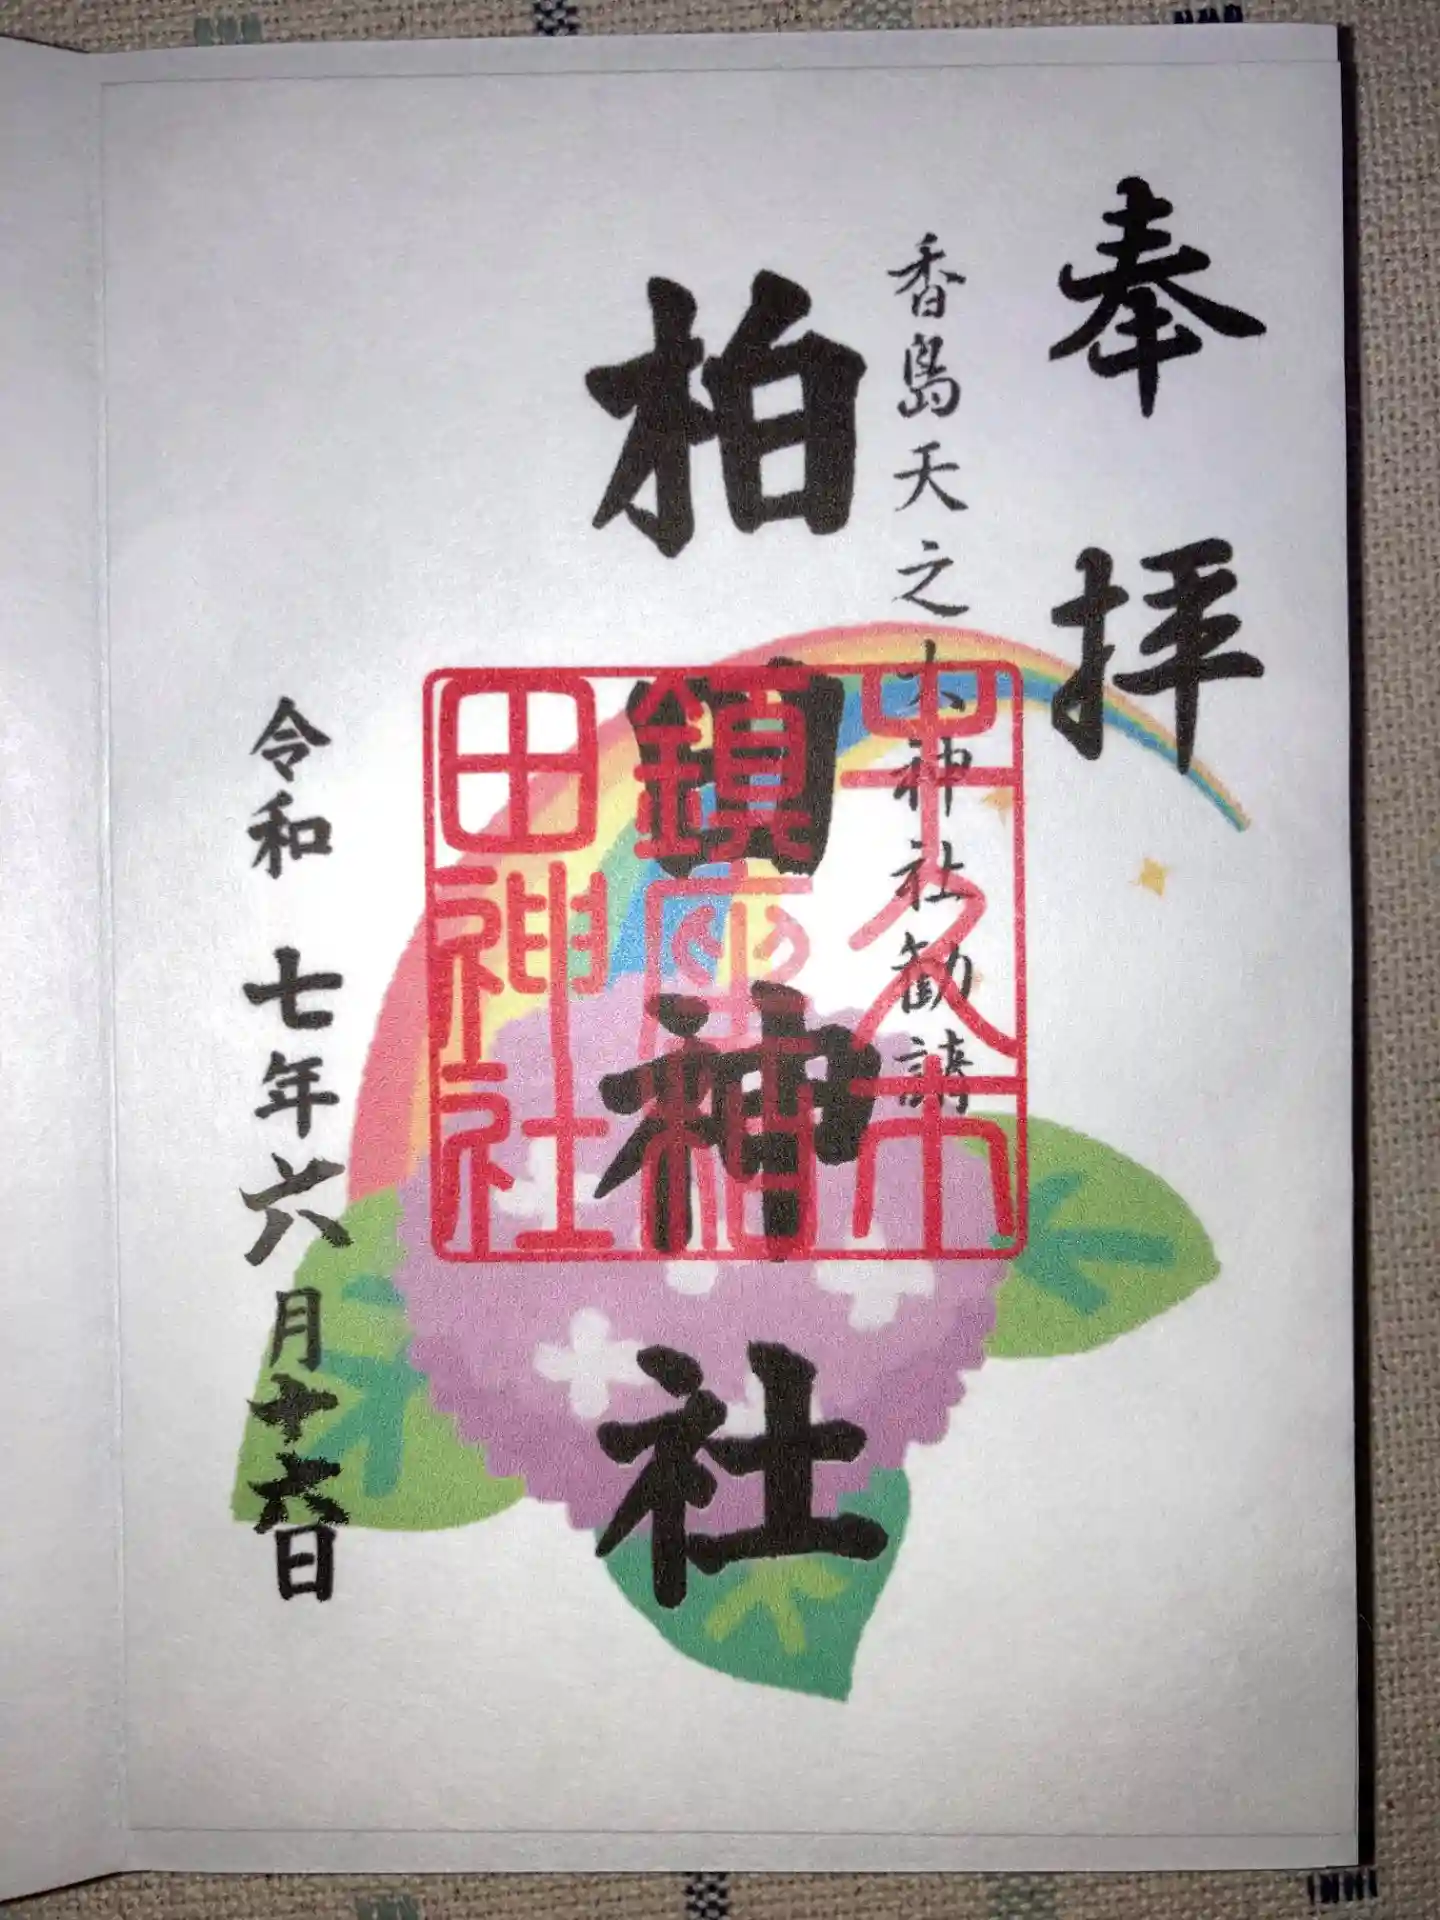 奉拝
香島天之大神社勧請
柏田神社
牛久市
鎮座柏
田神社
令和 七年六月十六日